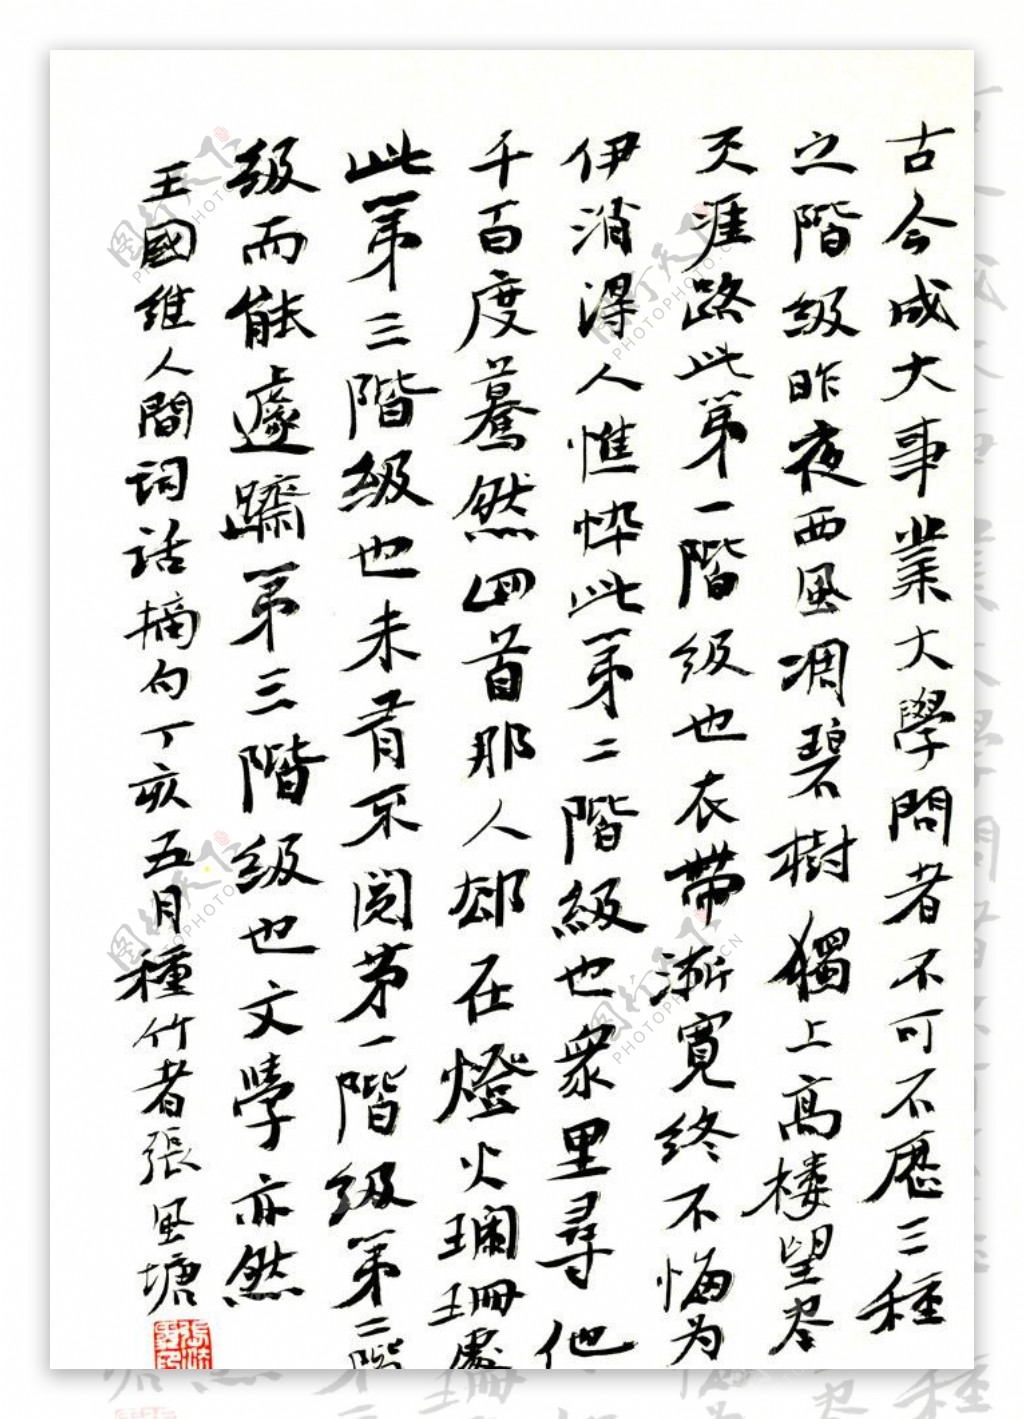 古今成大事業大學問者不可不歷三種
之階級昨夜西風凋碧樹獨上高樓望尽
天涯路此第一階級也衣帶漸寬終不悔为
伊消得人憔悴此第二階級也眾里尋他
千百度驀然回首那人却在燈火瓓珊處
此第三階級也未有不閱第一階級第二階
級而能遽躋第三階級也文學亦然
王國維人間詞話摘句丁亥五月種竹者張風塘